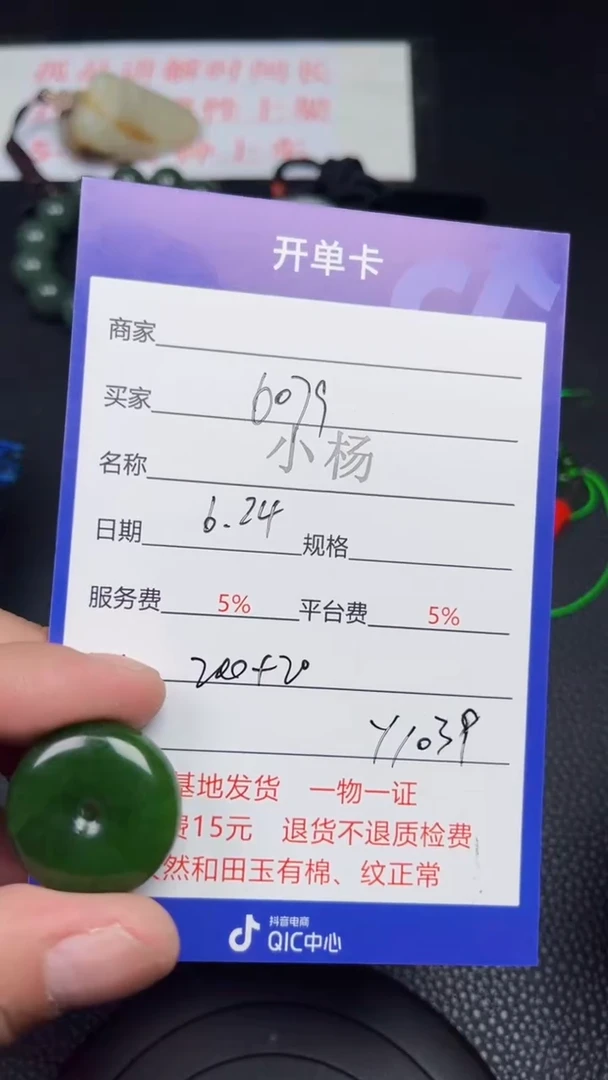 开单卡
商家
买家 6079
小杨
名称
日期 6.24 规格
服务费 5% 平台费 5%
200+20
Y1039
基地发货 一物一证
费15元 退货不退质检费
然和田玉有棉、纹正常
抖音电商
QIC中心